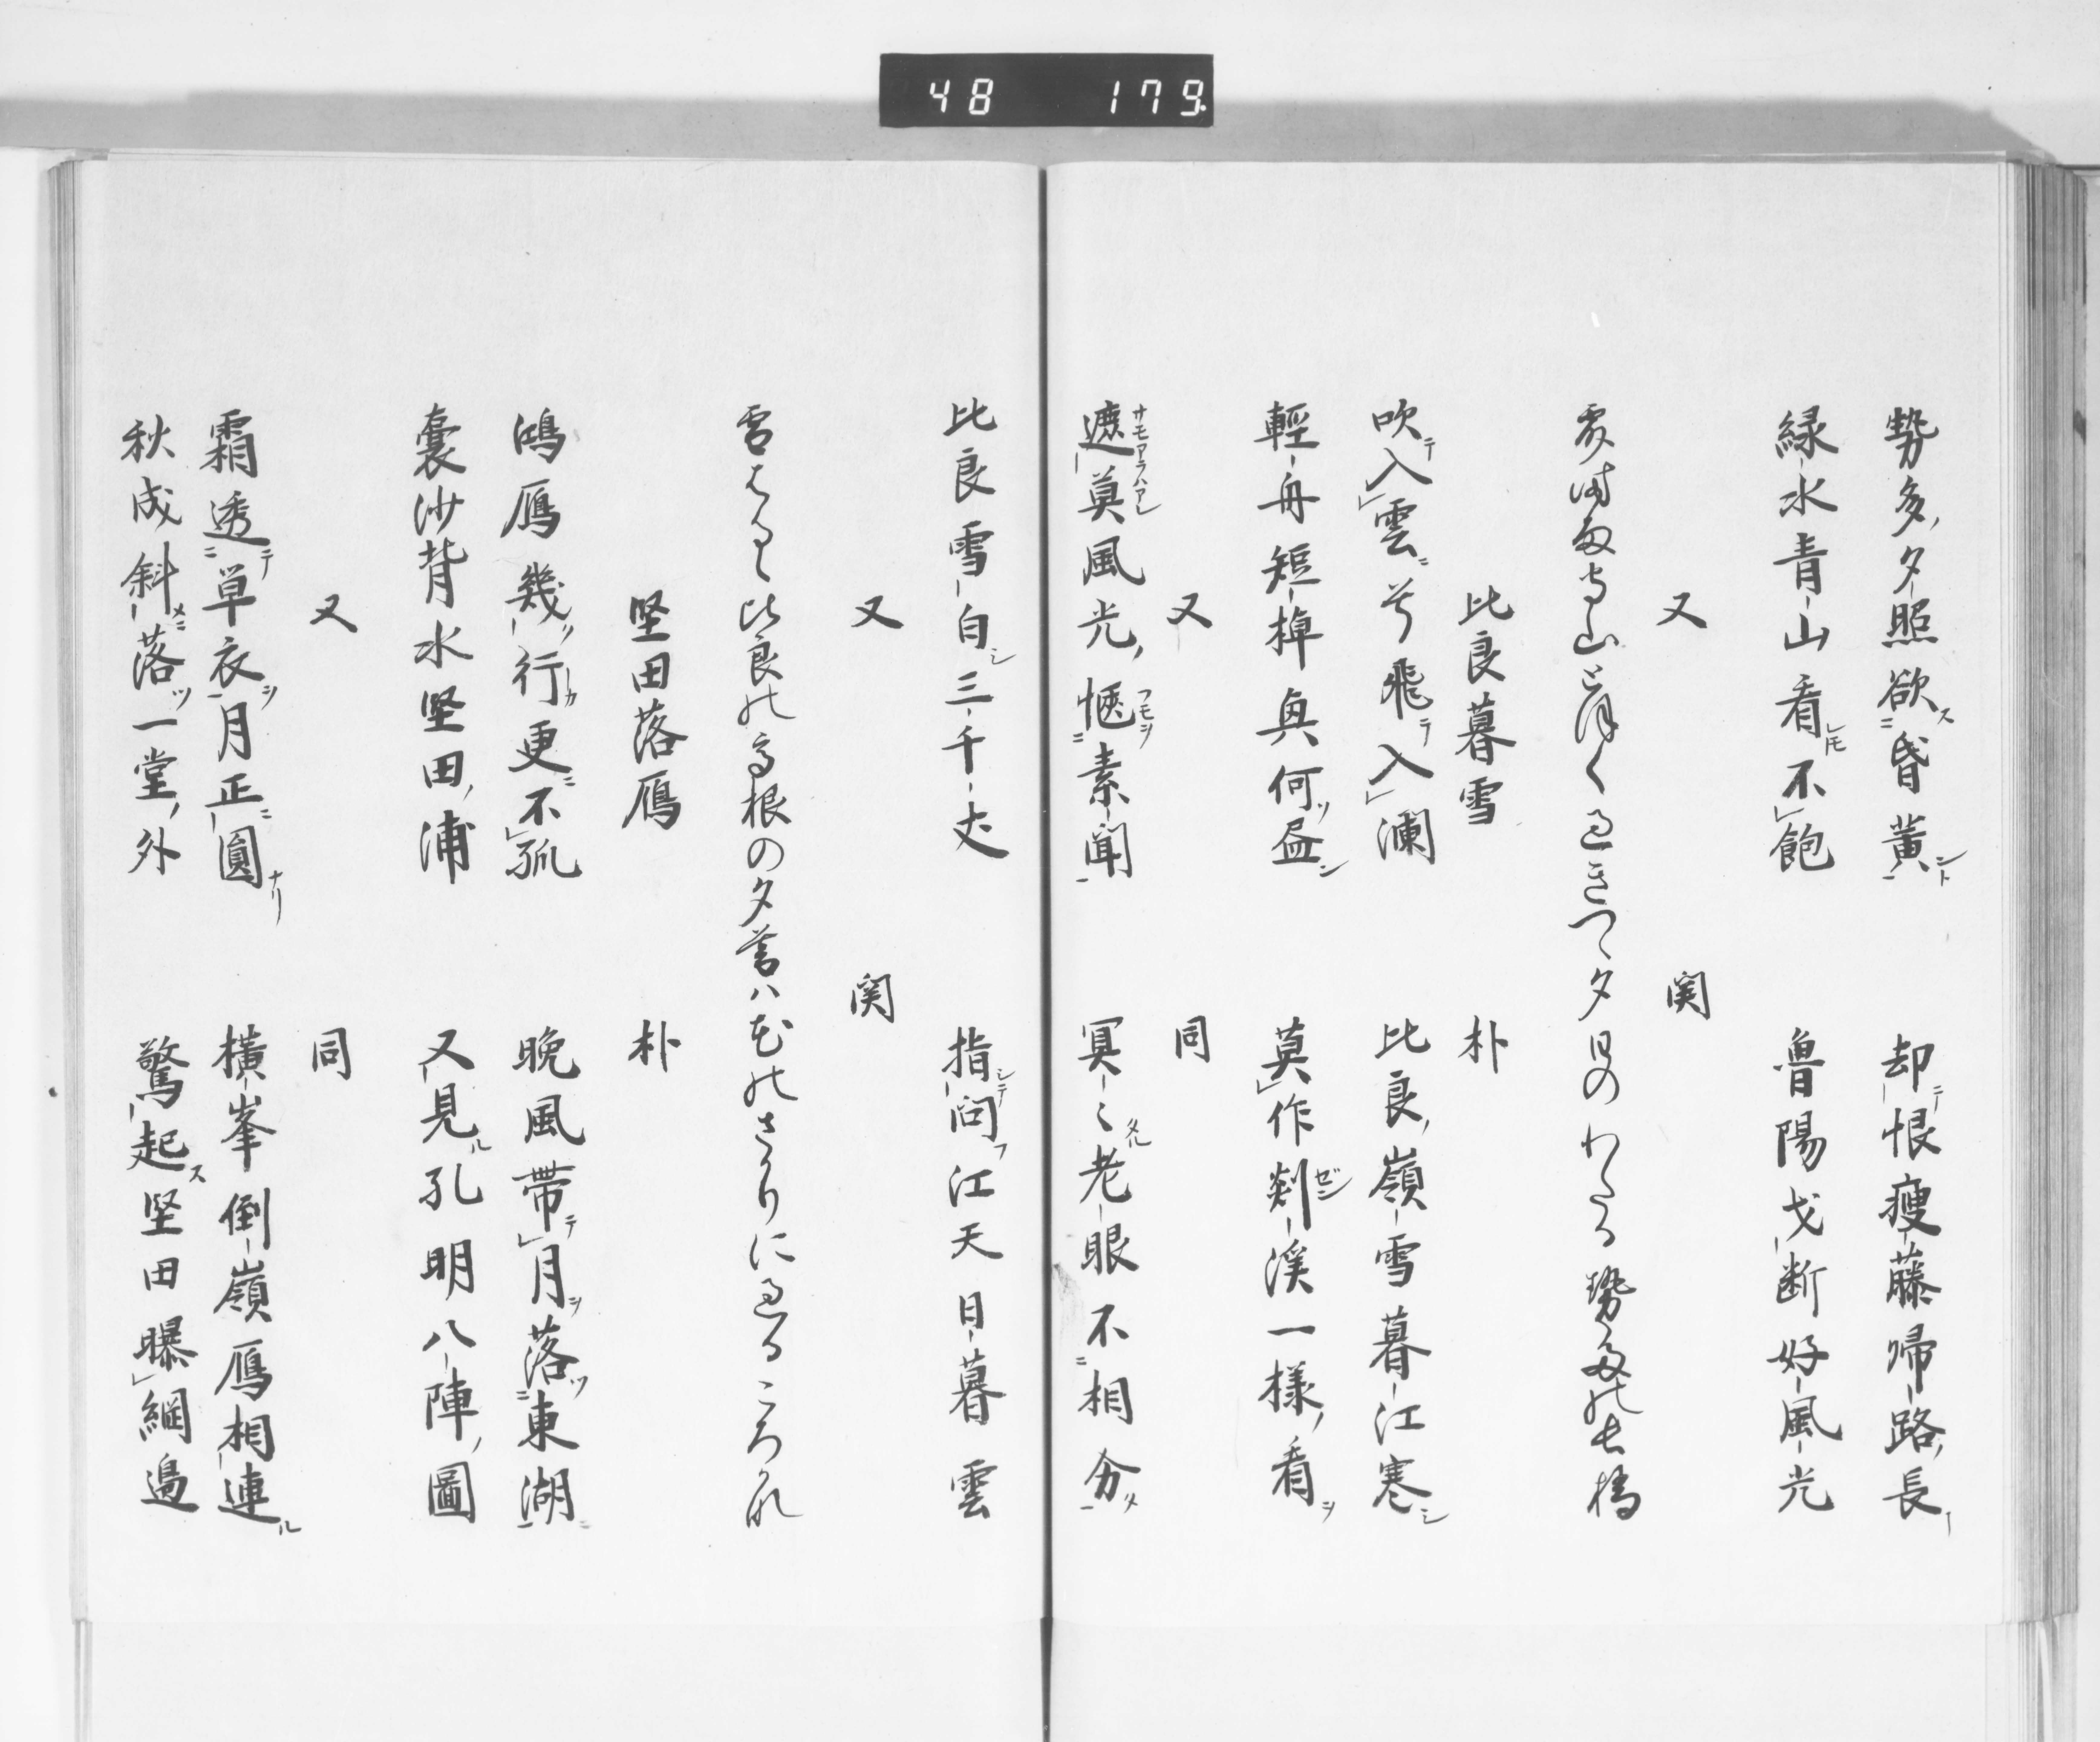 48 179
勢多夕照欲昏黄　却恨痩藤帰路長
緑水青山看不飽　魯陽戈断好風光
又　関
露時雨もる山とほく過きつゝ夕日のわたる勢多の長橋
比良暮雪　朴
吹入雲兮飛入瀾　比良嶺雪暮江寒
輕舟短棹興何盡　莫作剡溪一様看
又　同
遮莫風光愜素聞　冥〻老眼不相分
比良雪白三千丈　指問江天日暮雲
又　関
雪はるゝ比良の高根の夕暮ハ花のさかりに過るころかな
堅田落鴈　朴
鴻鴈幾行更不孤　晩風帯月落東湖
嚢沙背水堅田浦　又見孔明八陣圖
又　同
霜透草衣月正圓　横峯倒嶺鴈相連
秋成斜落一堂外　驚起堅田曝網邉